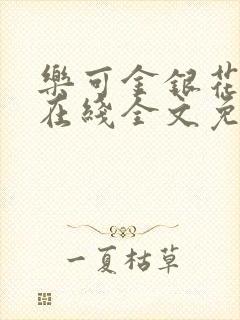 樂可金銀花
在綫全文免
一夏枯草